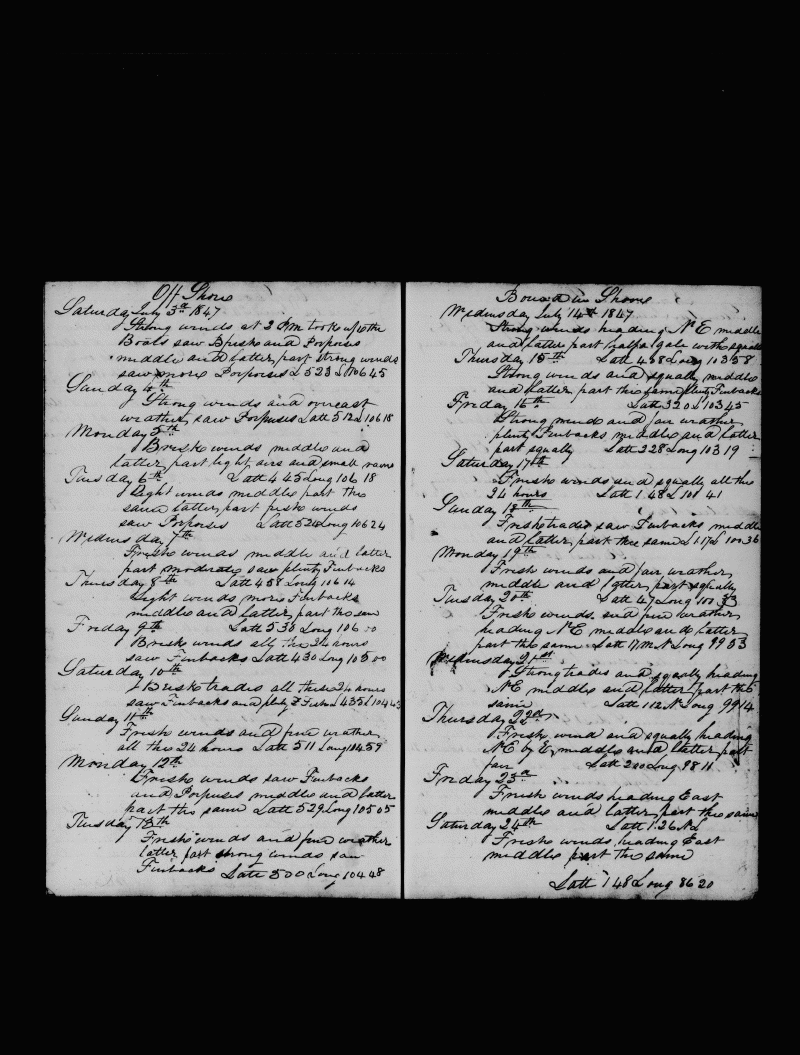 Off Shore
Saturday July 3d 1847
Strong winds at 2 P.M. took up the
Boats saw Brisks and Porpoises
middle and latter part strong winds
saw more Porpoises L 523 L 10645
Sunday 4th
Strong winds and overcast
weather saw Porpuses Latt 512 L 10618
Monday 5th
Brisk winds middle and
latter part light airs and small
Tuesday 6th Latt 445 Long 106 18
Light winds middle part the
same latter part fresh winds
saw Porpoises Latt 520 Long 10624
Wednesday 7th
Fresh winds middle and latter
part moderate saw plenty Finbacks
Thursday 8th Latt 458 Long 106 14
Light winds more Finbacks
middle and latter part the same
Friday 9th Latt 530 Long 106
Brisk winds all the 24 hours
saw Finbacks Latt 430 Long 10500
Saturday 10th
Brisk trades all these 24 hours
saw Finbacks and plenty F Fish L 435 L 10443
Sunday 11th
Fresh winds and fine weather
all this 24 hours Latt 511 Long 10459
Monday 12th
Fresh winds saw Finbacks
and Porpuses middle and latter
part the same Latt 529 Long 10505
Tuesday 13th
Fresh winds and fine weather
latter part strong winds saw
Finbacks Latt 500 Long 10448
Bound in Shore
Wednesday July 14th 1847
Strong winds heading N E middle
and latter part half a gale with squalls
Thursday 15th Latt 438 Long 10358
Strong winds and squally middle
and latter part the same plenty Finbacks
Friday 16th Latt 320 L 10345
Strong winds and fair weather
plenty Finbacks middle and latter
part squally Latt 228 Long 10319
Saturday 17th
Fresh winds and squally all the
24 hours Latt 1 48 L 101 41
Sunday 18th
Fresh trades saw Finbacks middle
and latter part the same L 117 L 100 36
Monday 19th
Fresh winds and fair weather
middle and latter part squally
Tuesday 20th Latt 47 Long 100 33
Fresh winds and fine weather
heading N E middle and latter
part the same Latt 17 m N Long 99 53
Wednesday 21st
Strong trades and squally heading
N E middle and latter part the
same Latt 112 N Long 9914
Thursday 22d
Fresh wind and squally heading
N E by E middle and latter part
fair Latt 200 Long 98 11
Friday 23d
Fresh winds heading East
middle and latter part the same
Saturday 24th Latt 1 26 N L
Fresh winds heading East
middle part the same
Latt 148 Long 86 20